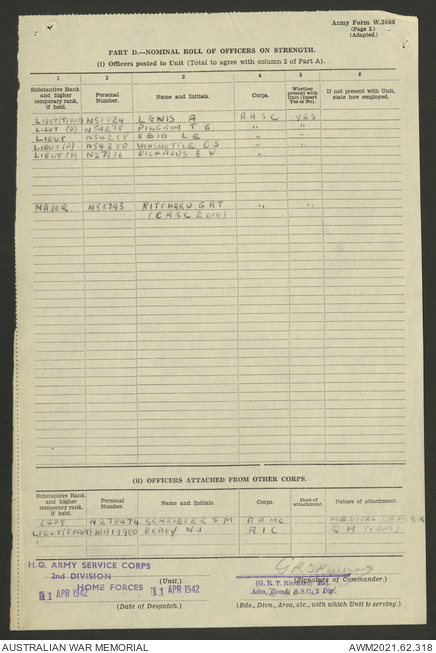 Army Form W.3008
(Page 2.)
(Adapted.)
PART D.—NOMINAL ROLL OF OFFICERS ON STRENGTH.
(i) Officers posted to Unit (Total to agree with column 2 of Part A).
1 2 3 4 5 6
Substantive Rank and higher temporary rank, if held. Personal Number. Name and Initials. Corps. Whether present with Unit (Insert Yes or No). If not present with Unit, state how employed.
LEWIS A AASC YES
LIEUT (P) N54278 PILGRIM T G " "
LIEUT REID L E " "
LIEUT (P) N54280 G S " "
LIEUT (P) RICHARDS E W " "
MAJOR N53745 RITCHARD G R T " "
(CASC 2 DIV)
(ii) OFFICERS ATTACHED FROM OTHER CORPS.
Substantive Rank and higher temporary rank, if held. Personal Number. Name and Initials. Corps. Date of attachment. Nature of attachment.
CAPT N278474 S M AAMC MEDICAL OFFICER
W J AIC Q M
H.Q. ARMY SERVICE CORPS
2nd DIVISION
HOME FORCES (Unit.)
11 APR 1942 11 APR 1942
(Date of Despatch.)
(Signature of Commander.)
(G. R. T. Ritchard) Maj.
Adm. Comd. A.S.C. 2 Div.
(Bde., Divn., Area, etc., with which Unit is serving.)
AUSTRALIAN WAR MEMORIAL AWM2021.62.318